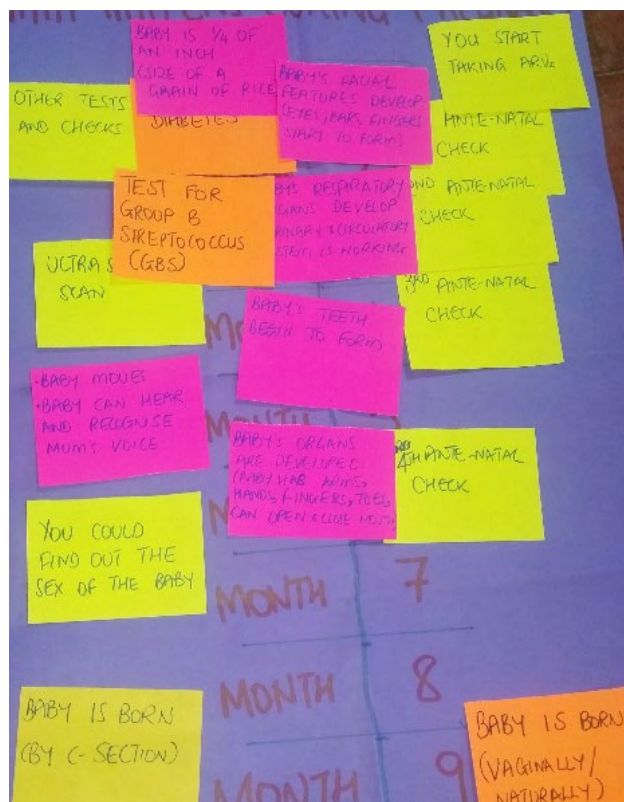 BABY IS 1/4 OF
AN INCH
(SIZE OF A
GRAIN OF RICE
YOU START
TAKING ARVs
OTHER TESTS
AND CHECKS
DIABETES
BABY'S FACIAL
FEATURES DEVELOP
(EYES, EARS, FINGERS
START TO FORM)
ANTE-NATAL
CHECK
TEST FOR
GROUP B
STREPTOCOCCUS
(GBS)
RESPIRATORY
DEVELOP
& CIRCULATORY
IS WORKING
ANTE-NATAL
CHECK
ULTRA S
SCAN
3RD ANTE-NATAL
CHECK
BABY'S TEETH
BEGIN TO FORM
• BABY MOVES
• BABY CAN HEAR
AND RECOGNISE
MUM'S VOICE
MONTH
BABY'S ORGANS
ARE DEVELOPED
(BABY HAS ARMS,
HANDS, FINGERS, TOES,
CAN OPEN & CLOSE MOUTH
4TH ANTE-NATAL
CHECK
YOU COULD
FIND OUT THE
SEX OF THE BABY
MONTH 7
MONTH 8
BABY IS BORN
(BY C-SECTION)
MONTH 9
BABY IS BORN
(VAGINALLY/
NATURALLY)